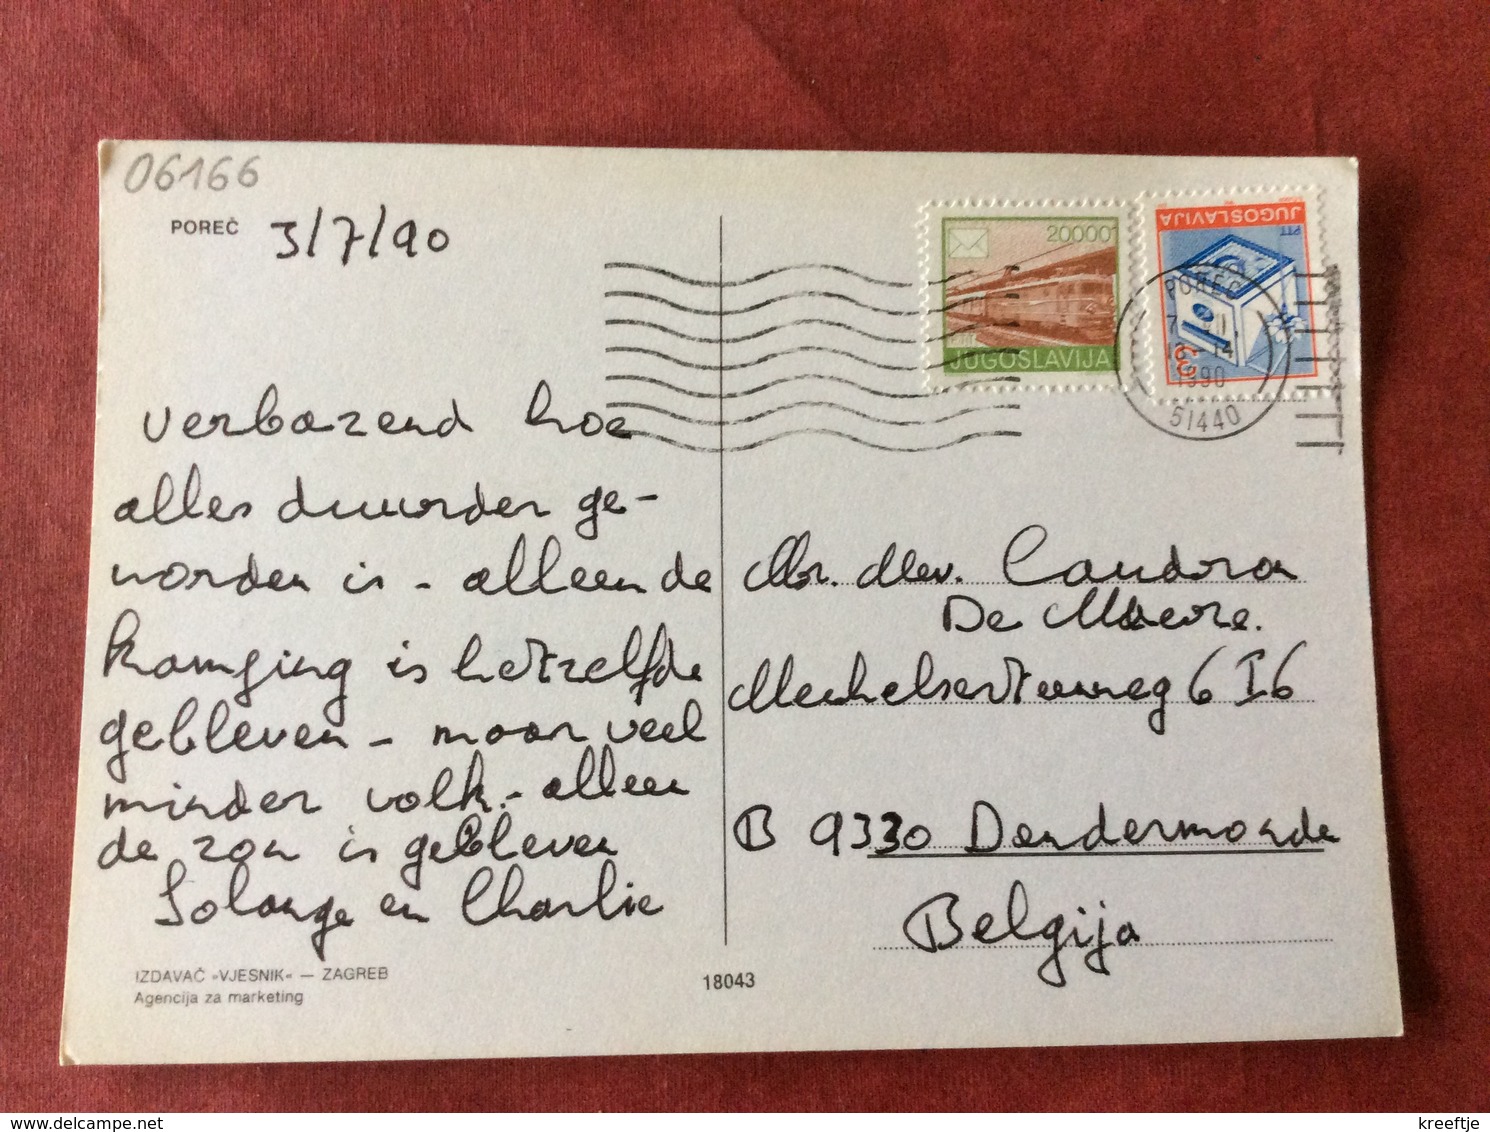 06166
POREČ 3/7/90
20000
JUGOSLAVIJA
JUGOSLAVIJA
PTT
3
POREČ
7. VII.
13-14
1990
51440
verbazend hoe
alles duurder ge-
worden is - alleen de
kamping is hetzelfde
gebleven - maar veel
minder volk - alleen
de zon is gebleven
Solange en Charlie
Mr. Mev. Caudron
De Maere.
Mechelsesteenweg 6 I 6
B 9330 Dendermonde
Belgija
IZDAVAČ »VJESNIK« — ZAGREB
Agencija za marketing
18043
delcampe.net
kreeftje